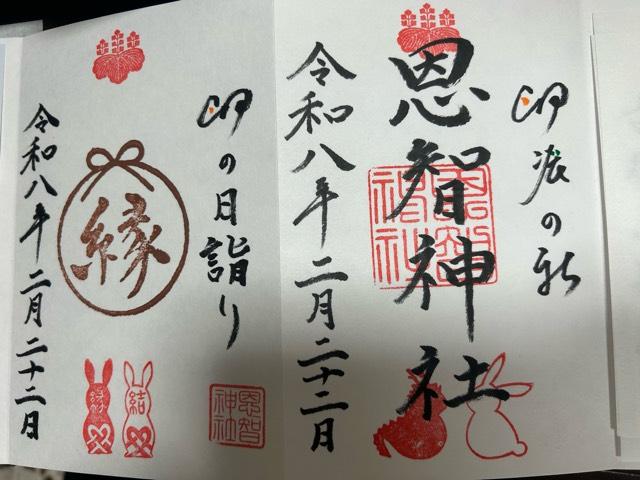 卯辰の祈
恩智神社
恩智
神社
令和八年二月二十二日
卯の日詣り
縁
令和八年二月二十二日
恩智
神社
結